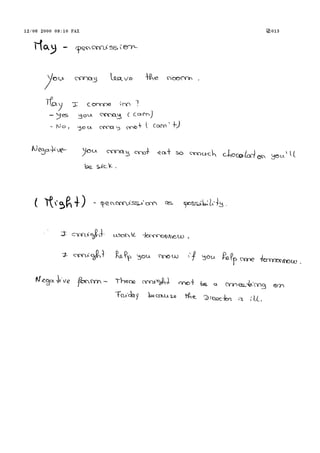 12/08 2000 09:18 FAX 013
May - permission
You may leave the room.
May I come in ?
- yes you may (can)
- No, you may not ( can't)
Negative You may not eat so much chocolat or you'll
be sick.
( Might) - permission or possibility.
I might work tomorrow.
I might help you now if you help me tomorrow.
Negative form - There might not be a meeting on
Friday because the Director is ill.